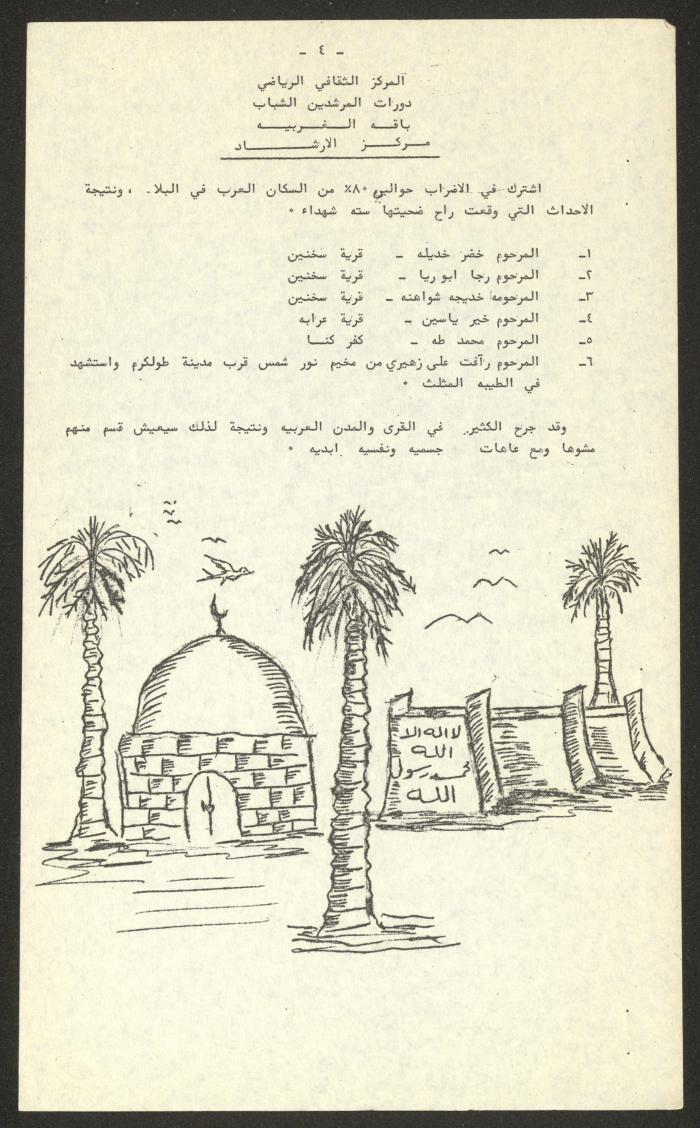 - ٤ -
المركز الثقافي الرياضي
دورات المرشدين الشباب
باقه الغربيه
مركز الارشاد
اشترك في الاضراب حوالي ٨٠٪ من السكان العرب في البلا. ، ونتيجة
الاحداث التي وقعت راح ضحيتها سته شهداء ٠
١- المرحوم خضر خديله - قرية سخنين
٢- المرحوم رجا ابو ريا - قرية سخنين
٣- المرحومه خديجه شواهنه - قرية سخنين
٤- المرحوم خير ياسين - قرية عرابه
٥- المرحوم محمد طه - كفر كنا
٦- المرحوم رآفت على زهيري من مخيم نور شمس قرب مدينة طولكرم واستشهد
في الطيبه المثلث ٠
وقد جرح الكثير في القرى والمدن العربيه ونتيجة لذلك سيعيش قسم منهم
مشوها ومع عاهات جسميه ونفسيه ابديه ٠
لا اله الا
الله
محمد رسول
الله